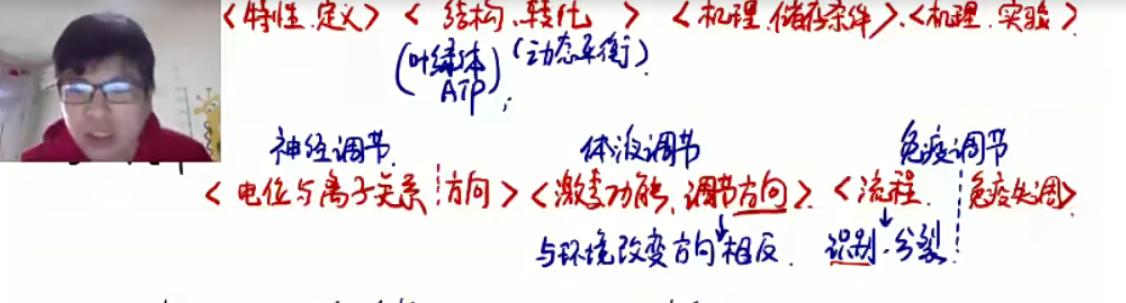 <特性.定义> <结构、转化> <机理.储存条件>.<机理.实验>.
(叶绿体 (动态平衡).
ATP);
神经调节. 体液调节 免疫调节
<电位与离子关系 方向> <激素功能、调节方向>. <流程. 免疫失调>
与环境改变方向相反. 识别.分裂.